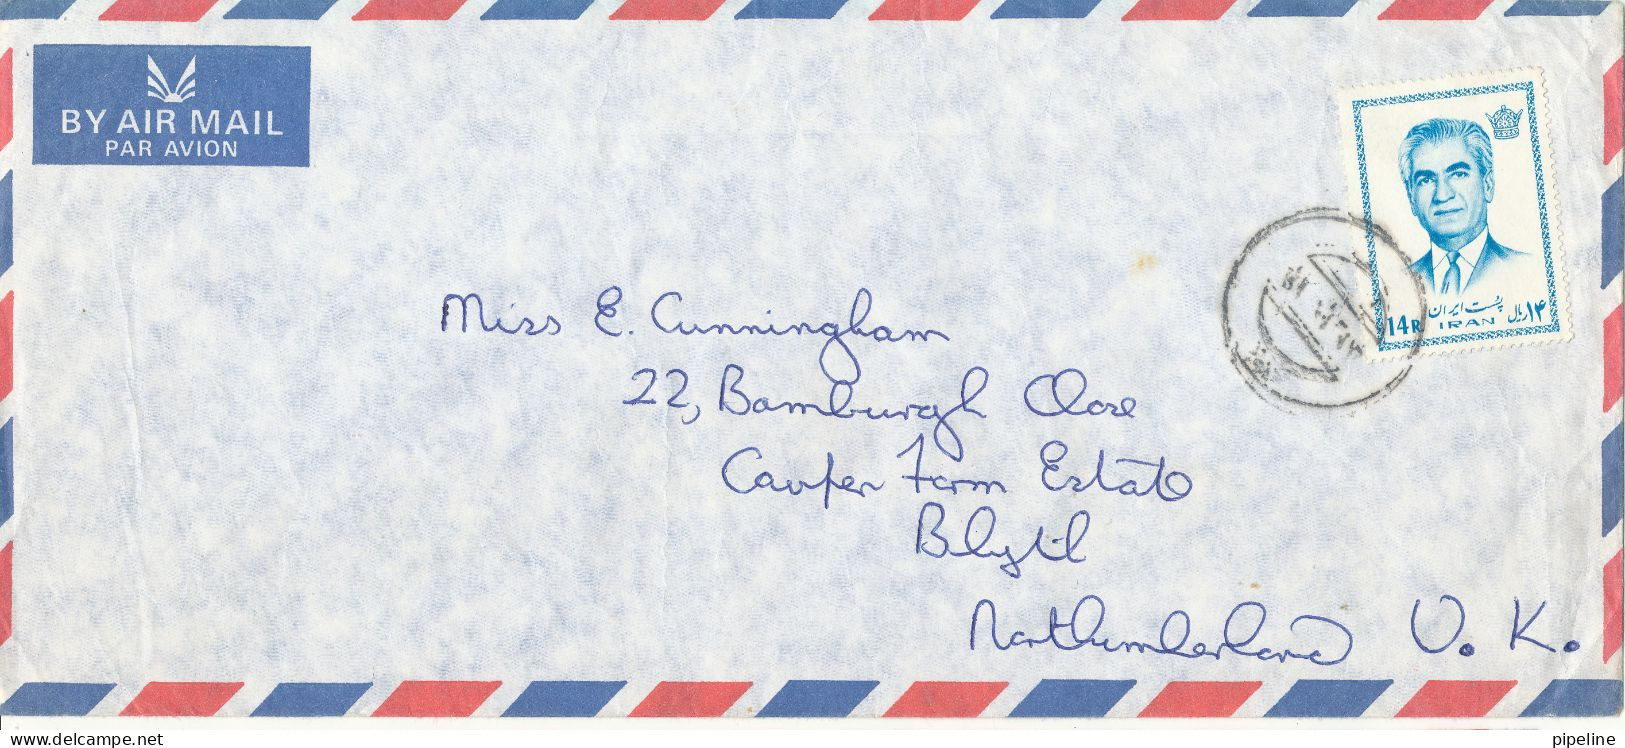 BY AIR MAIL
PAR AVION
پست ایران
۱۴ ریال
14R
IRAN
Miss E. Cunningham
22, Bamburgh Close
Cowpen Farm Estate
Blyth
Northumberland U.K.
www.delcampe.net
pipeline